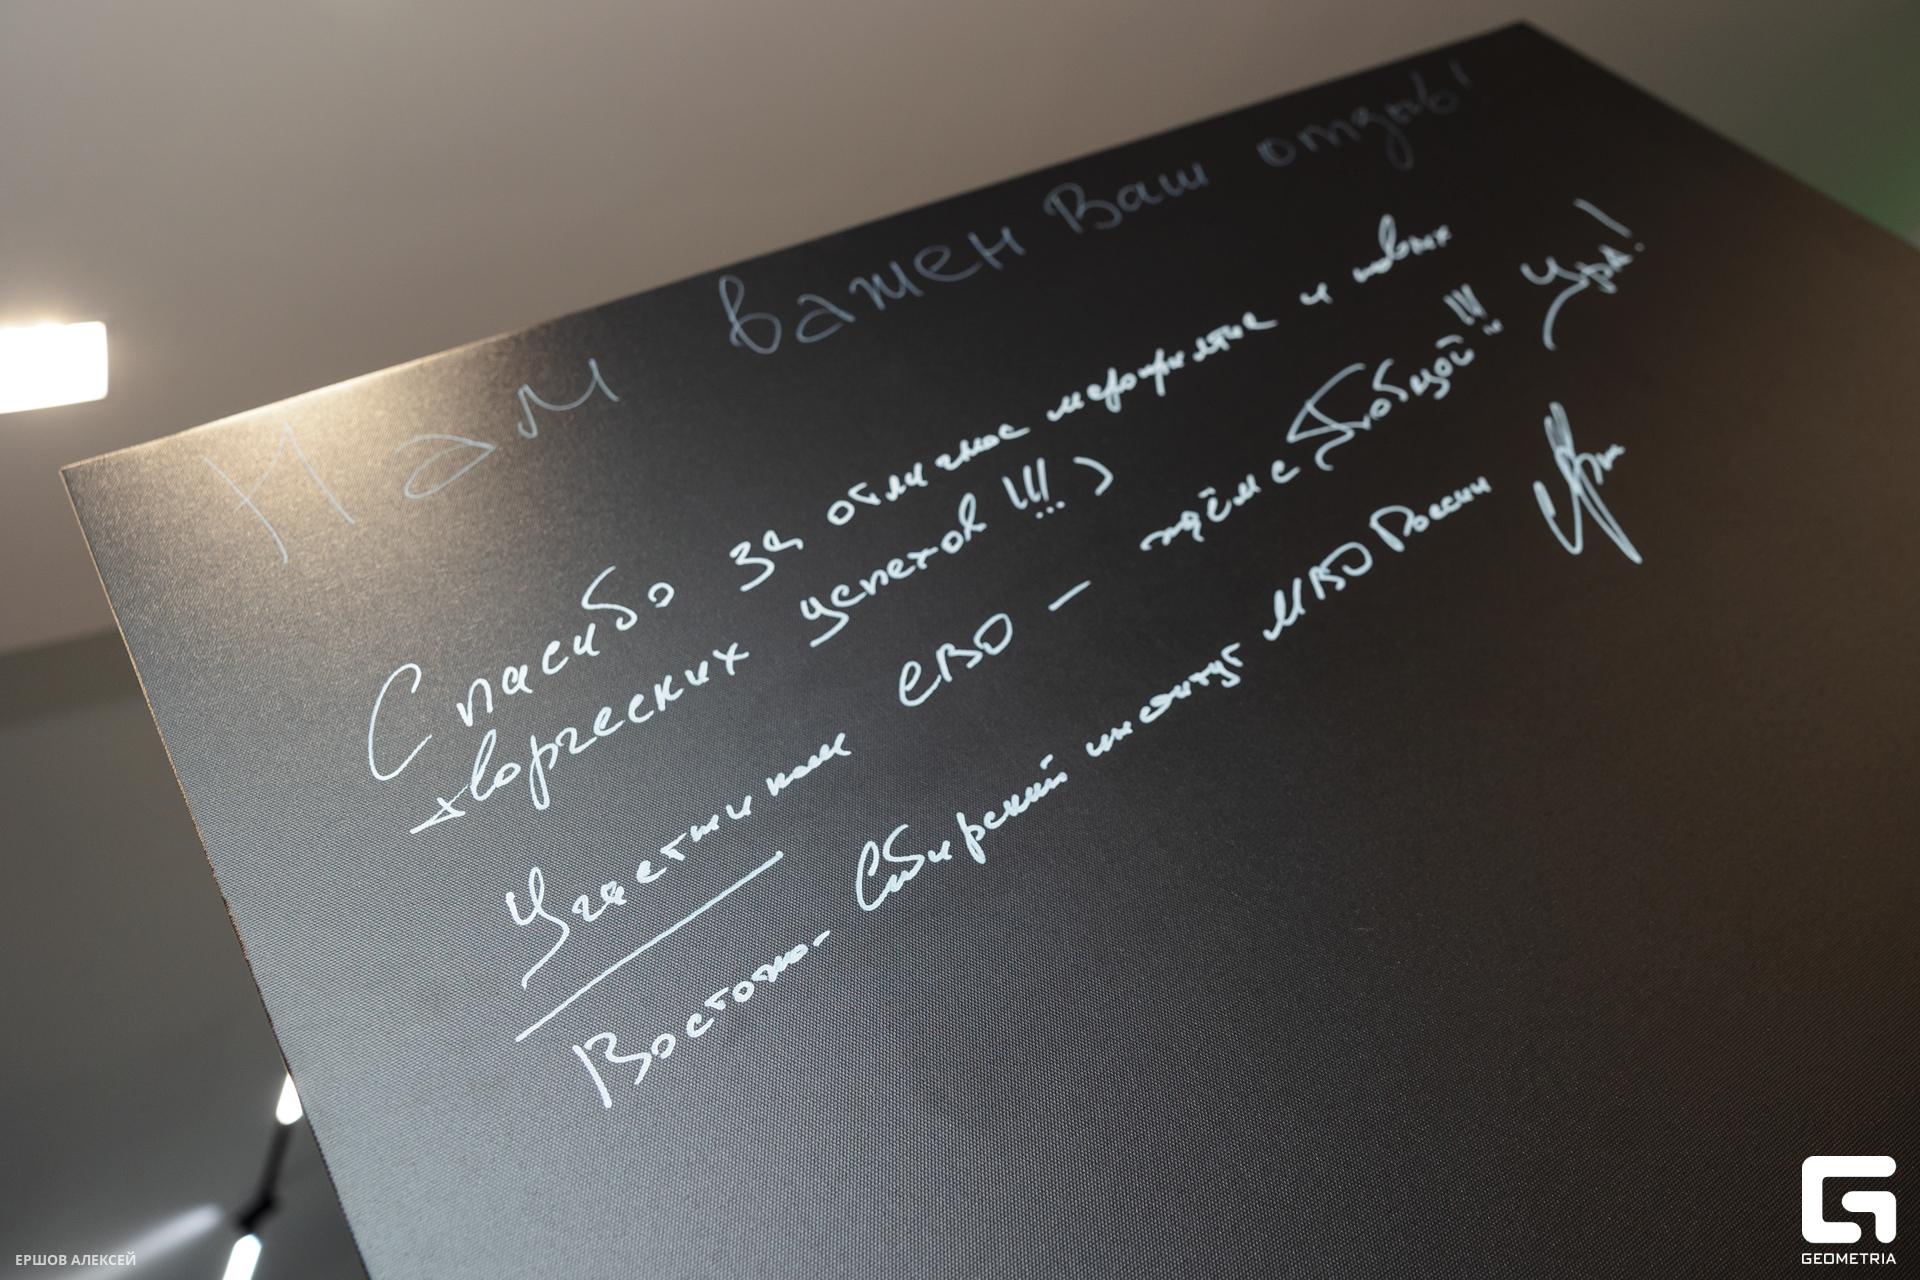 Нам важен Ваш отзыв!
Спасибо за отличное мероприятие и новых
творческих успехов!!!)
Участникам СВО — ждём с Победой!!! Ура!
Восточно-Сибирский институт МВД России
ЕРШОВ АЛЕКСЕЙ
GEOMETRIA